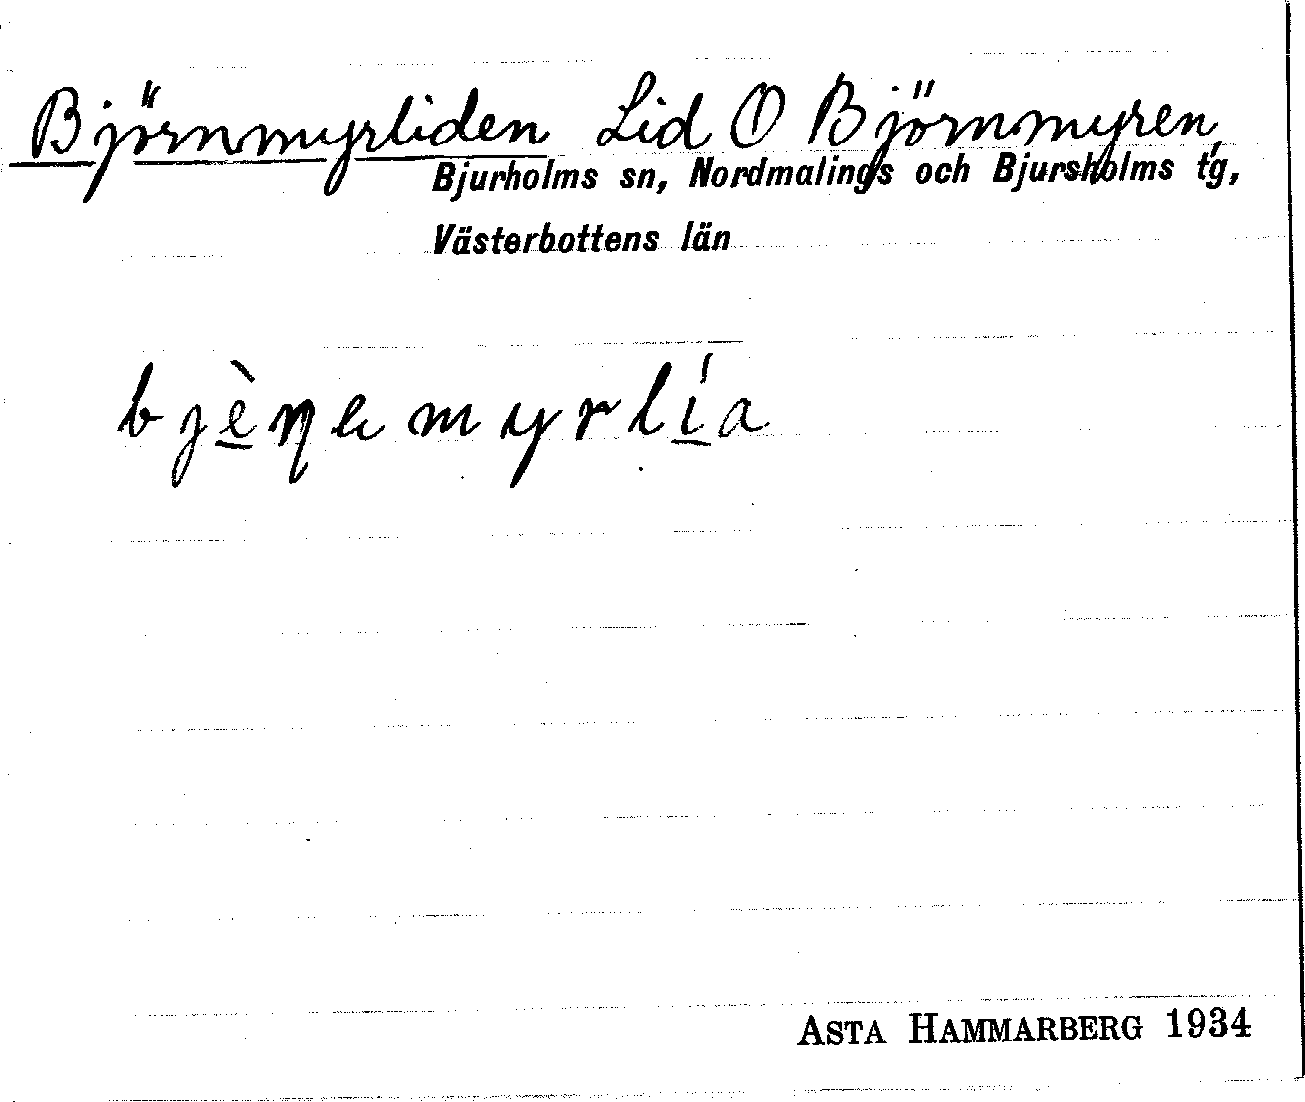 Björnmyrliden Lid O Björnmyren,
Bjurholms sn, Nordmalings och Bjursholms tg,
Västerbottens län
bjèn̨amyrlía
ASTA HAMMARBERG 1934